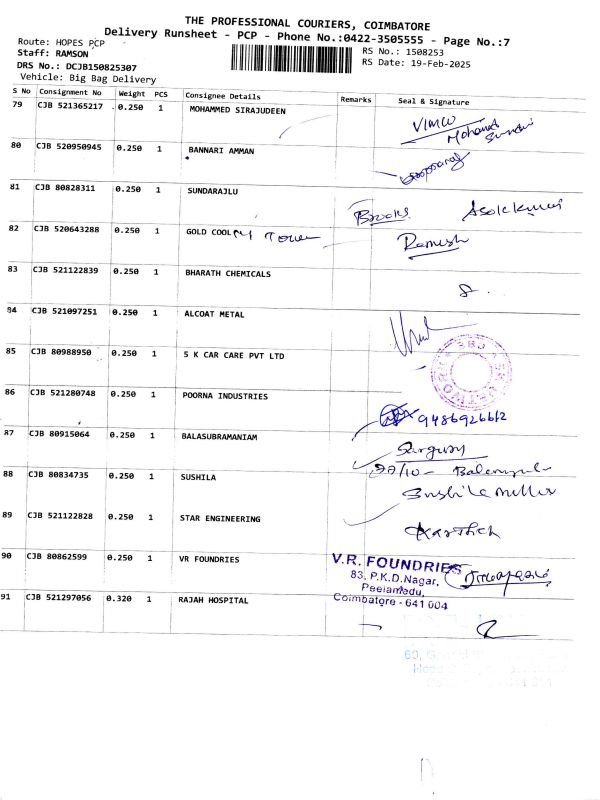 THE PROFESSIONAL COURIERS, COIMBATORE
Delivery Runsheet - PCP - Phone No.:0422-3505555 - Page No.:7
Route: HOPES PCP
RS No.: 1508253
Staff: RAMSON
RS Date: 19-Feb-2025
DRS No.: DCJB150825307
Vehicle: Big Bag Delivery
S No Consignment No Weight PCS Consignee Details Remarks Seal & Signature
79 CJB 521365217 0.250 1 MOHAMMED SIRAJUDEEN
VIMCO
Mohamed
80 CJB 520950945 0.250 1 BANNARI AMMAN
*
81 CJB 80828311 0.250 1 SUNDARAJLU
Brooks Asokkumar
82 CJB 520643288 0.250 1 GOLD COOL Tower Ramesh
83 CJB 521122839 0.250 1 BHARATH CHEMICALS
84 CJB 521097251 0.250 1 ALCOAT METAL
85 CJB 80988950 0.250 1 S K CAR CARE PVT LTD
86 CJB 521280748 0.250 1 POORNA INDUSTRIES
9486926662
87 CJB 80915064 0.250 1 BALASUBRAMANIAM
88 CJB 80834735 0.250 1 SUSHILA
89 CJB 521122828 0.250 1 STAR ENGINEERING
Karthick
90 CJB 80862599 0.250 1 VR FOUNDRIES
V.R. FOUNDRIES
83, P.K.D.Nagar,
Peelamedu,
Coimbatore - 641 004
91 CJB 521297056 0.320 1 RAJAH HOSPITAL